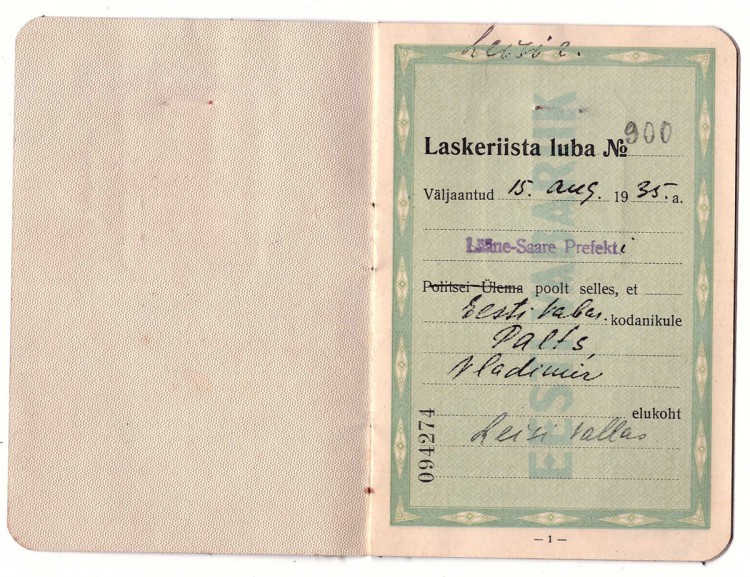 Leisi 2.
Laskeriista luba № 900
Väljaantud 15. aug. 1935. a.
Lääne-Saare Prefekti
Politsei-Ülema poolt selles, et
Eesti vabar. kodanikule
Palts,
Vladimir
elukoht
Leisi vallas
094274
EESTI VABARIIK
— 1 —